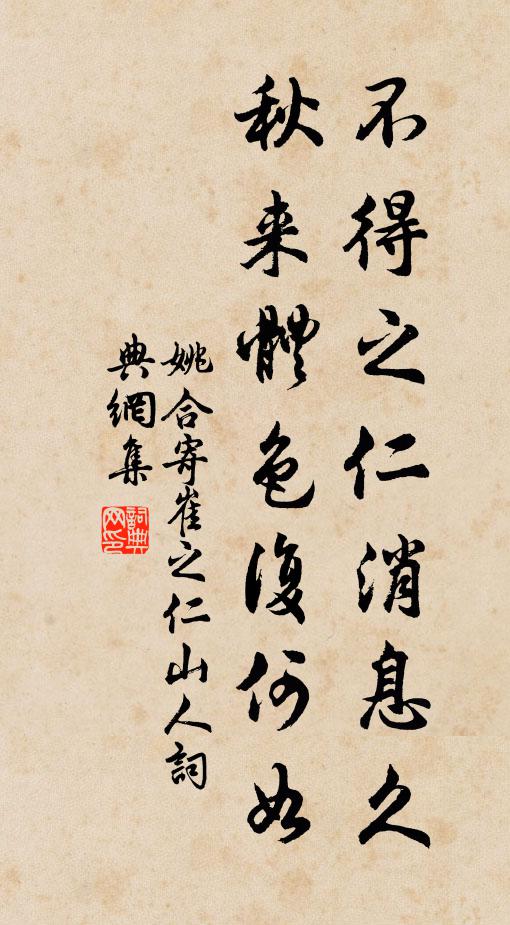 不得之仁消息久
秋来體色復何如
姚合寄崔之仁山人詞
典網集
詞典
网印